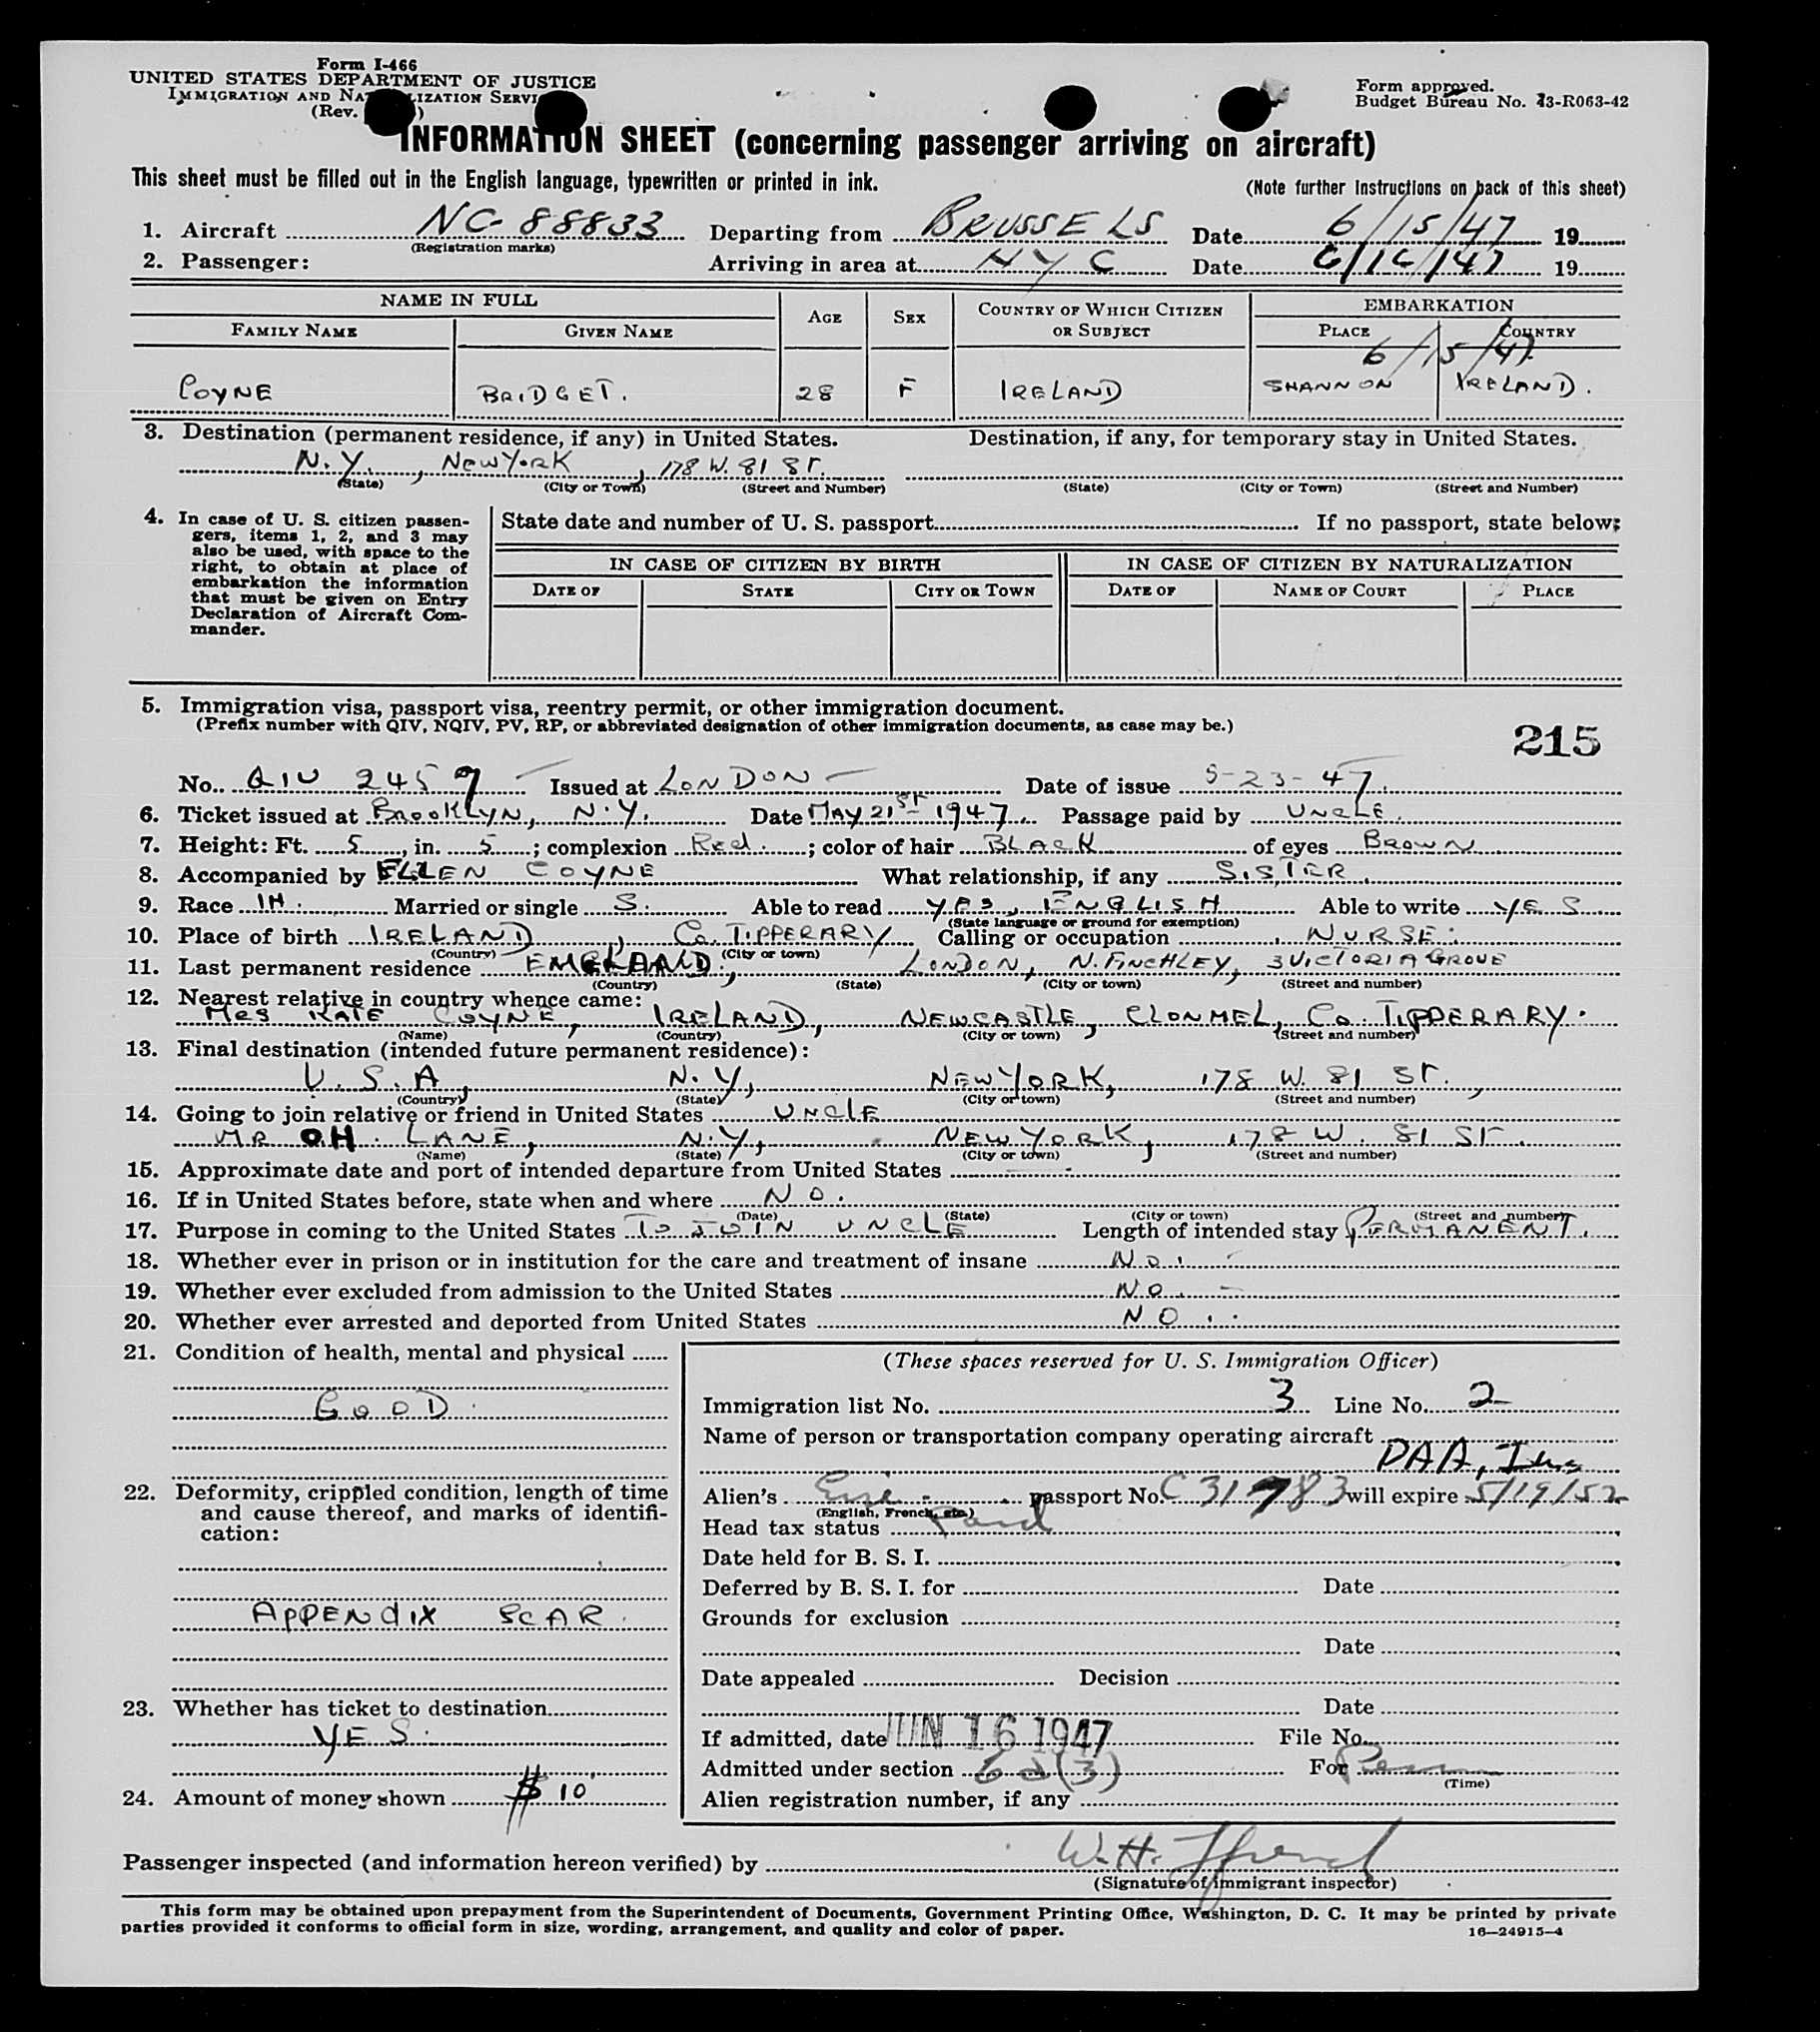 Form I-466
UNITED STATES DEPARTMENT OF JUSTICE
IMMIGRATION AND NATURALIZATION SERVICE
(Rev. )
Form approved.
Budget Bureau No. 43-R063-42
INFORMATION SHEET (concerning passenger arriving on aircraft)
This sheet must be filled out in the English language, typewritten or printed in ink.
(Note further instructions on back of this sheet)
1. Aircraft NC-88833 Departing from BRUSSELS Date 6/15/47 19
(Registration marks)
2. Passenger: Arriving in area at NYC Date 6/16/47 19
NAME IN FULL AGE SEX COUNTRY OF WHICH CITIZEN OR SUBJECT EMBARKATION
FAMILY NAME GIVEN NAME PLACE COUNTRY
6/15/47
COYNE BRIDGET. 28 F IRELAND SHANNON IRELAND.
3. Destination (permanent residence, if any) in United States. Destination, if any, for temporary stay in United States.
N.Y., NEW YORK, 178 W. 81 ST.
(State) (City or Town) (Street and Number) (State) (City or Town) (Street and Number)
4. In case of U. S. citizen passen-
gers, items 1, 2, and 3 may
also be used, with space to the
right, to obtain at place of
embarkation the information
that must be given on Entry
Declaration of Aircraft Com-
mander.
State date and number of U. S. passport If no passport, state below:
IN CASE OF CITIZEN BY BIRTH IN CASE OF CITIZEN BY NATURALIZATION
DATE OF STATE CITY OR TOWN DATE OF NAME OF COURT PLACE
5. Immigration visa, passport visa, reentry permit, or other immigration document.
(Prefix number with QIV, NQIV, PV, RP, or abbreviated designation of other immigration documents, as case may be.)
215
No. QIV 2459 Issued at LONDON Date of issue 5-23-47.
6. Ticket issued at BROOKLYN, N.Y. Date MAY 21ST 1947. Passage paid by UNCLE.
7. Height: Ft. 5, in. 5; complexion Red.; color of hair BLACK of eyes BROWN
8. Accompanied by ELLEN COYNE What relationship, if any SISTER
9. Race IH. Married or single S. Able to read YES, ENGLISH Able to write YES
(State language or ground for exemption)
10. Place of birth IRELAND, Co. TIPPERARY Calling or occupation NURSE.
(Country) (City or town)
11. Last permanent residence LONDON, N. FINCHLEY, 3 VICTORIA GROVE
(Country) (State) (City or town) (Street and number)
12. Nearest relative in country whence came:
MRS KATE COYNE, IRELAND, NEWCASTLE, CLONMEL, Co. TIPPERARY.
(Name) (Country) (City or town) (Street and number)
13. Final destination (intended future permanent residence):
U.S.A, N.Y, NEW YORK, 178 W. 81 ST.,
(Country) (State) (City or town) (Street and number)
14. Going to join relative or friend in United States UNCLE
MR OH. LANE, N.Y, NEW YORK, 178 W. 81 ST.
(Name) (State) (City or town) (Street and number)
15. Approximate date and port of intended departure from United States
16. If in United States before, state when and where NO.
(Date) (State) (City or town) (Street and number)
17. Purpose in coming to the United States TO JOIN UNCLE Length of intended stay PERMANENT.
18. Whether ever in prison or in institution for the care and treatment of insane NO.
19. Whether ever excluded from admission to the United States NO.
20. Whether ever arrested and deported from United States NO.
21. Condition of health, mental and physical
GOOD.
22. Deformity, crippled condition, length of time
and cause thereof, and marks of identifi-
cation:
APPENDIX SCAR.
23. Whether has ticket to destination
YES.
24. Amount of money shown $10
(These spaces reserved for U. S. Immigration Officer)
Immigration list No. 3 Line No. 2
Name of person or transportation company operating aircraft
PAA, Inc
Alien's Eire passport No. C 31783 will expire 5/19/52
(English, French, etc.)
Head tax status Paid
Date held for B. S. I.
Deferred by B. S. I. for Date
Grounds for exclusion
Date
Date appealed Decision
Date
If admitted, date JUN 16 1947 File No.
Admitted under section 6a(3) For Perm
(Time)
Alien registration number, if any
Passenger inspected (and information hereon verified) by W.H.
(Signature of immigrant inspector)
This form may be obtained upon prepayment from the Superintendent of Documents, Government Printing Office, Washington, D. C. It may be printed by private
parties provided it conforms to official form in size, wording, arrangement, and quality and color of paper.
16—24915-4